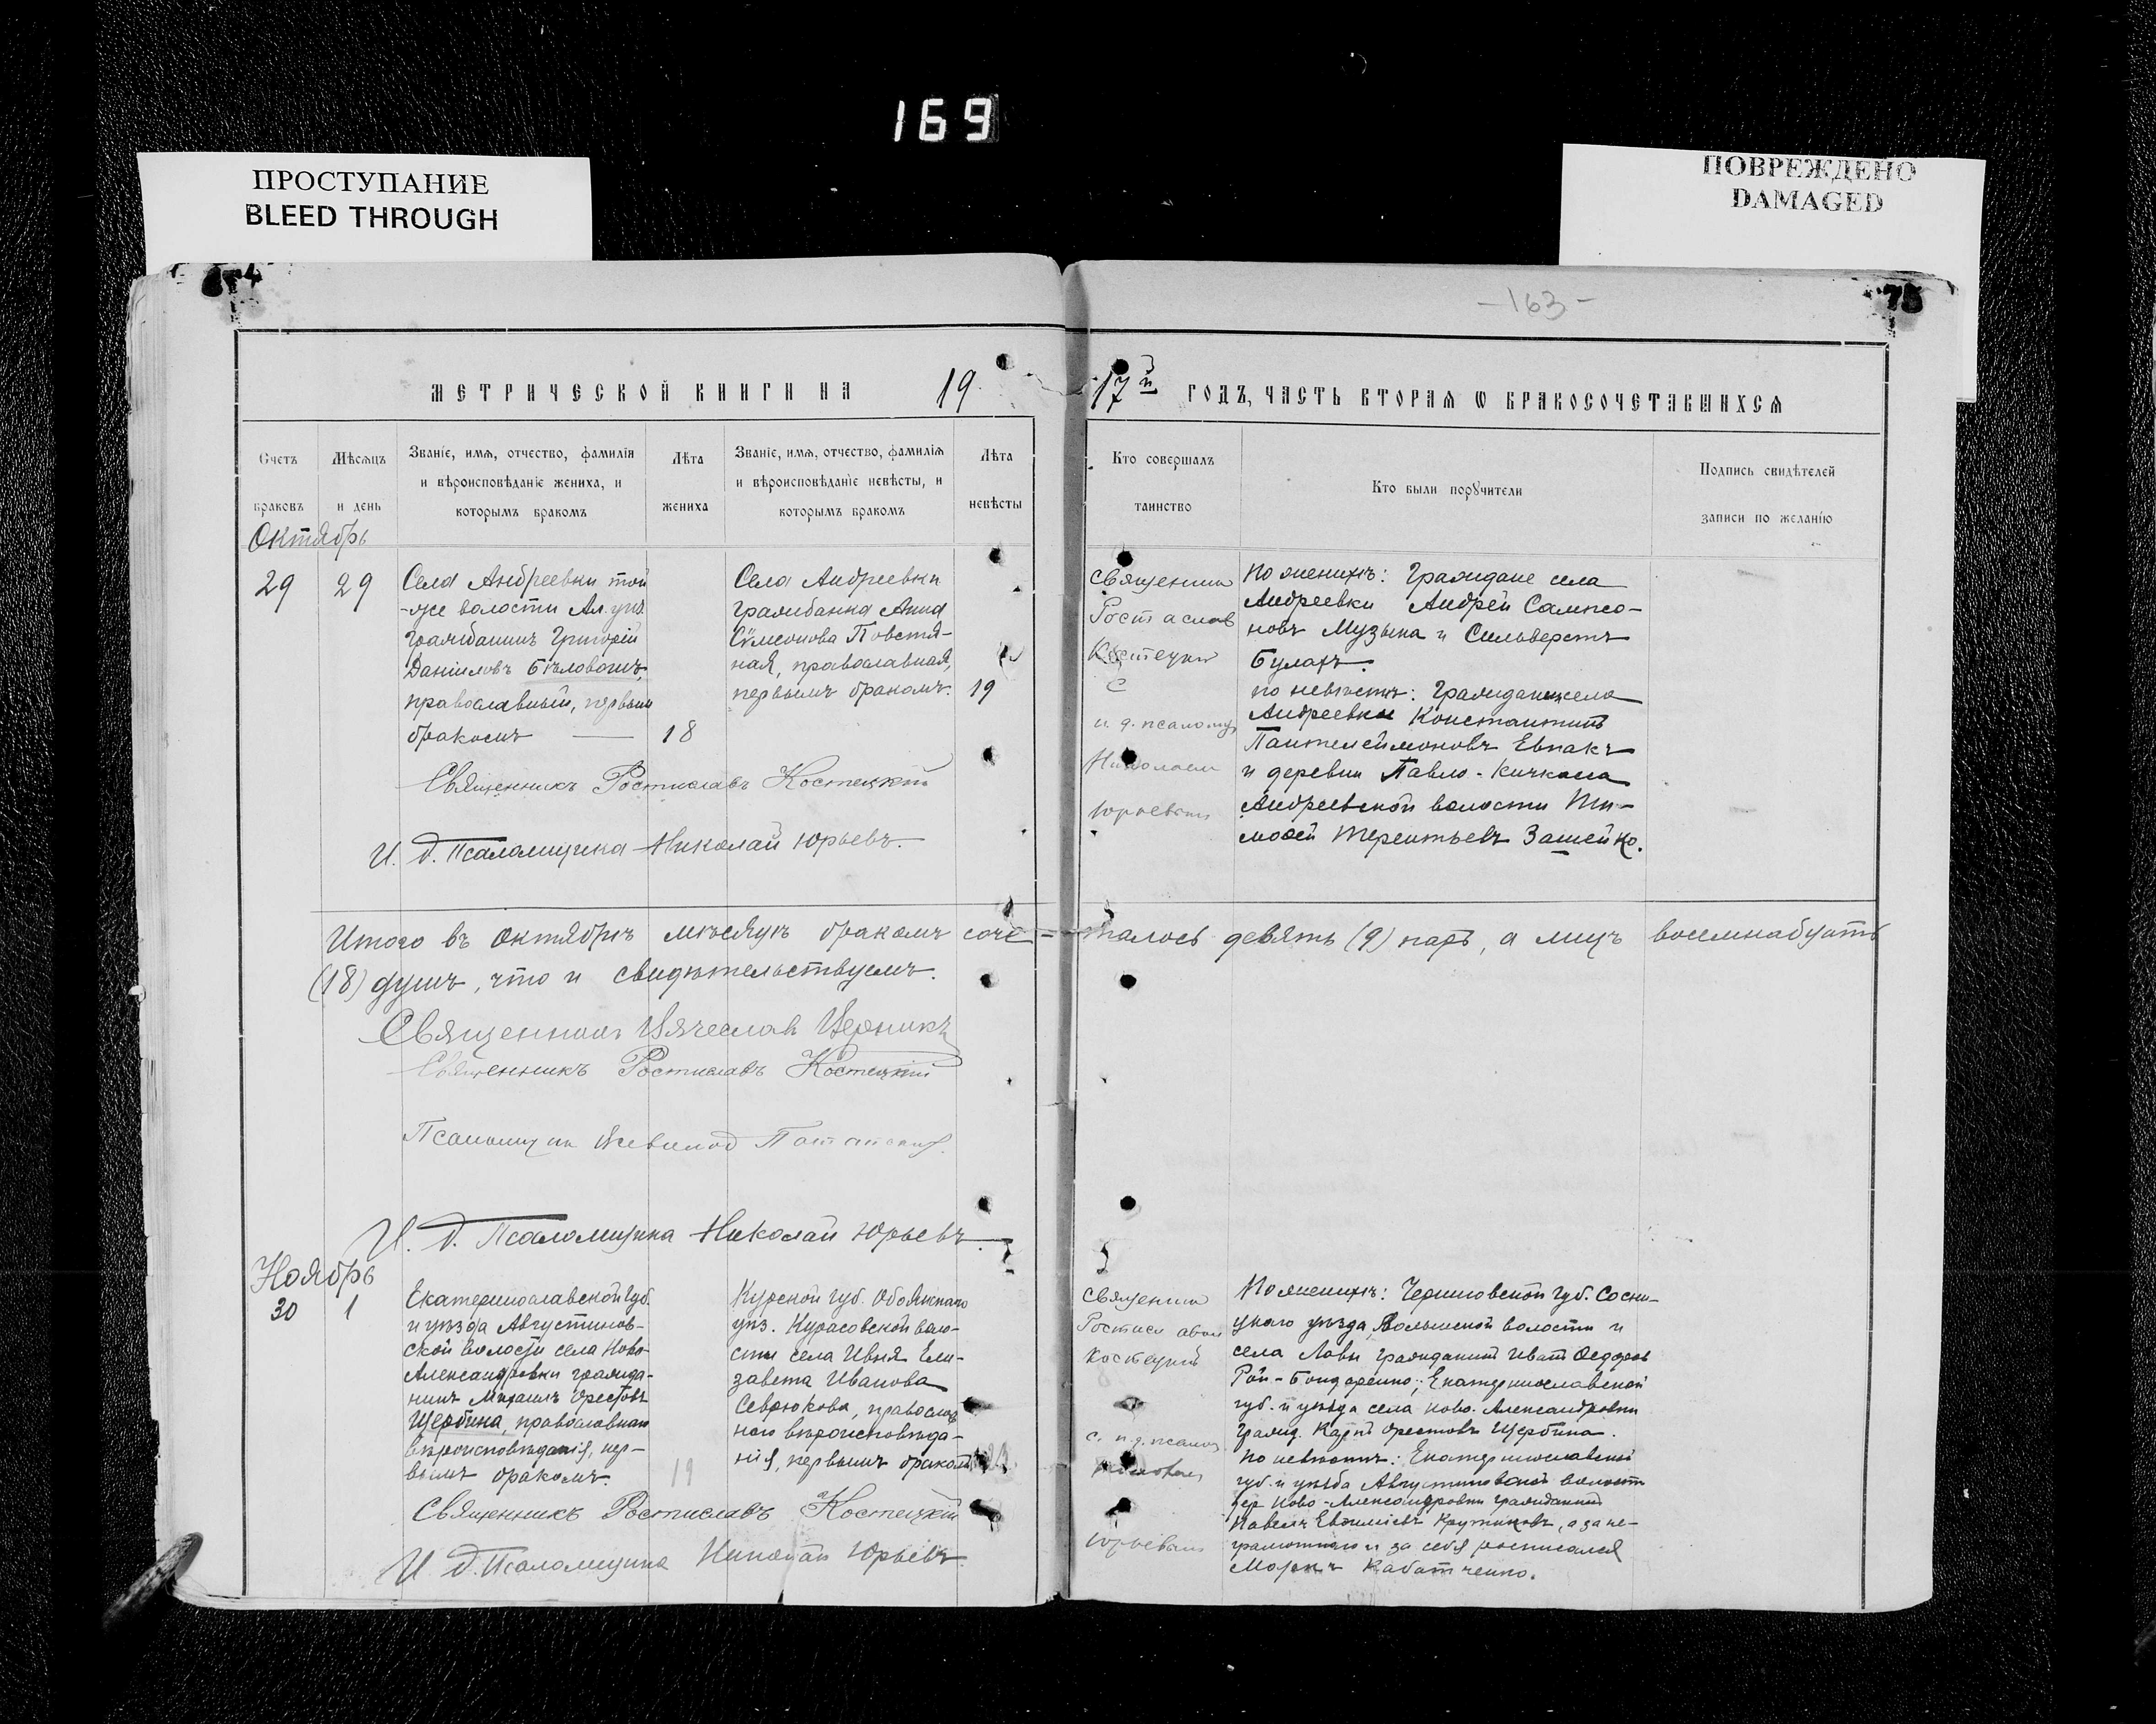 169
ПРОСТУПАНИЕ
BLEED THROUGH
ПОВРЕЖДЕНО
DAMAGED
-163-
75
МЕТРИЧЕСКОЙ КНИГИ НА 1917й ГОДЪ, ЧАСТЬ ВТОРАЯ Ѡ БРАКОСОЧЕТАВШИХСЯ
Счетъ браковъ
Мѣсяцъ и день
Званіе, имя, отчество, фамилія и вѣроисповѣданіе жениха, и которымъ бракомъ
Лѣта жениха
Званіе, имя, отчество, фамилія и вѣроисповѣданіе невѣсты, и которымъ бракомъ
Лѣта невѣсты
Кто совершалъ таинство
Кто были поручители
Подпись свидѣтелей записи по желанію
Октябрь
29
29
Села Андреевки той
-же волости Ал. уѣз.
гражданинъ Григорій
Даніиловъ Бѣловолъ,
православный, первымъ
бракомъ — 18
Села Андреевки
гражданка Анна
Сѵмеонова Повстя-
ная, православная,
первымъ бракомъ. 19
Священникъ
Ростислав
Костецкій
с
и. д. псаломщ
Николаем
Юрьевым
По женихѣ: Граждане села
Андреевки Андрей Сампсо-
новъ Музыка и Сильверстъ
Булахъ.
по невѣстѣ: Гражданинъ села
Андреевки Константинъ
Пантелеймоновъ Евпакъ
и деревни Павло-Кичкаса
Андреевской волости Ти-
моѳей Терентьевъ Зашейко.
Священникъ Ростиславъ Костецкій
И. д. Псаломщика Николай Юрьевъ.
Итого въ Октябрѣ мѣсяцѣ бракомъ соче-талось девять (9) паръ, а лицъ восемнадцать
(18) душъ, что и свидѣтельствуемъ.
Священникъ Вячеслав
Священникъ Ростиславъ Костецкій
Псаломщик Всеволод
И. д. Псаломщика Николай Юрьевъ.
Ноябрь
30
1
Екатеринославской губ.
и уѣзда Августинов-
ской волости села Ново-
Александровки гражда-
нинъ Михаилъ Орестовъ
Щербина, православнаго
вѣроисповѣданія, пер-
вымъ бракомъ. 19
Курской губ. Обоянскаго
уѣз. Курасовской воло-
сти села Ивня Ели-
завета Иванова
Севрюкова, православ
наго вѣроисповѣда-
нія, первымъ бракомъ
Священник
Ростислався
Костецкій
с. и. д. псалом
Николаем
Юрьевым
По женихѣ: Черниговской губ. Сосни-
цкаго уѣзда, волости и
села гражданинъ Иванъ Ѳедоровъ
Рой-Бондаренко; Екатеринославской
губ. и уѣзда села Ново-Александровки
гражд. Карпъ Орестовъ Щербина.
По невѣстѣ: Екатеринославской
губ. и уѣзда Августиновской волости
дер Ново-Александровки гражданинъ
Павелъ Евѳиміевъ Крутиковъ, а за не-
грамотнаго и за себя росписался
Маркъ Кабатченко.
Священникъ Ростиславъ Костецкій
И д. Псаломщика Николай Юрьевъ.